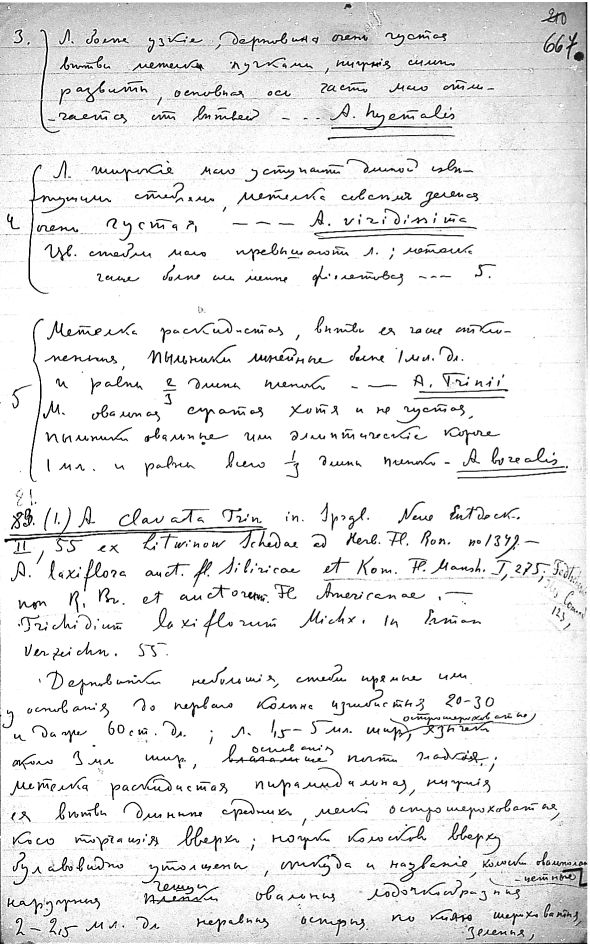 210
667.
3. Л. более узкіе, дерновина очень густая
вѣтви метелки пучками, нижнія сильно
развиты, основная ось часто мало отли-
-чается отъ вѣтвей --- A. hyemalis
4 Л. широкіе мало уступаютъ длиной
стеблямъ, метелка зеленая
очень густая --- A. viridissima
Цв. стебли мало превышаютъ л.; метелка
чаще болѣе или менѣе фіолетовая --- 5.
5 Метелка раскидистая, вѣтви ея чаще откло-
ненныя, пыльники линейные болѣе 1 мл. дл.
и равны 2/3 длины пленокъ --- A. Trinii
М. овальная сжатая хотя и не густая,
пыльники овальные или эллиптическіе короче
1 мл. и равны всего 1/3 длины пленокъ - A. borealis.
81.
89. (1.) A. clavata Trin. in. Sprgl. Neue Entdeck.
II, 55 ex Litwinow Schedae ad Herb. Fl. Ross. no 1379. -
A. laxiflora auct. fl. Sibiricae et Kom. Fl. Mansh. I, 275;
non R. Br. et auctorum Fl. Americanae. -
Trichidium laxiflorum Michx. in Erman
Verzeichn. 55.
Дерновинки небольшія, стебли прямые или
у основанія до перваго колѣна изгибистыя 20-30
и даже 60 ст. дл.; л. 1,5-5 мл. шир, остро шероховатые, язычекъ
около 3 мл шир, влагалище основанія почти гладкія;
метелка раскидистая пирамидальная, нижнія
ея вѣтви длинные средникъ, мелко острошероховатыя,
косо торчащія вверхъ; ножки колосковъ вверху
булавовидно утолщены, откуда и названіе, колоски
-цетные
наружныя пленки чешуи овальныя лодочкообразныя
2-2,5 мл. дл неравныя острыя по килю шероховатыя,
зеленыя,